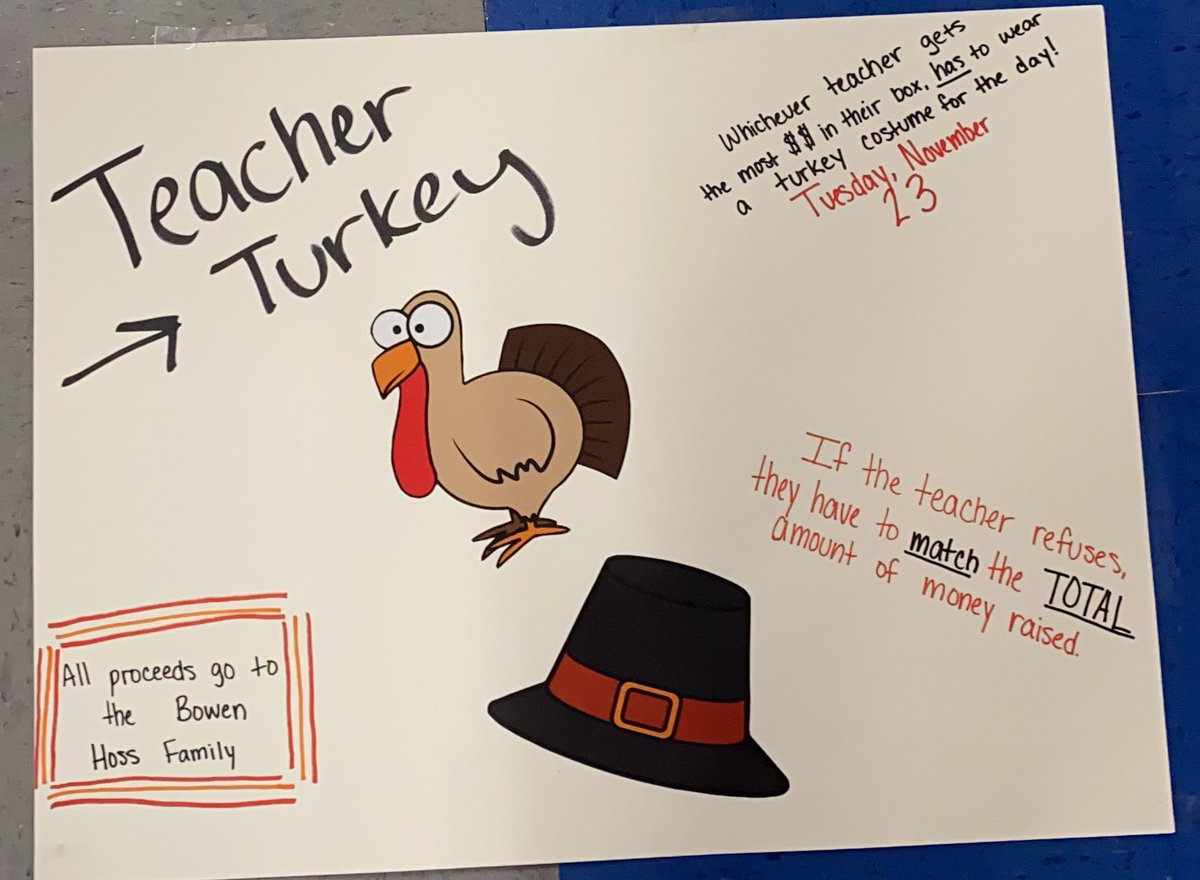 Teacher
Turkey
Whichever teacher gets
the most $$ in their box, has to wear
a turkey costume for the day!
Tuesday, November
23
If the teacher refuses,
they have to match the TOTAL
amount of money raised.
All proceeds go to
the Bowen
Hoss Family